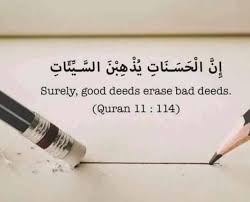 إِنَّ الْحَسَنَاتِ يُذْهِبْنَ السَّيِّئَاتِ
Surely, good deeds erase bad deeds.
(Quran 11 : 114)